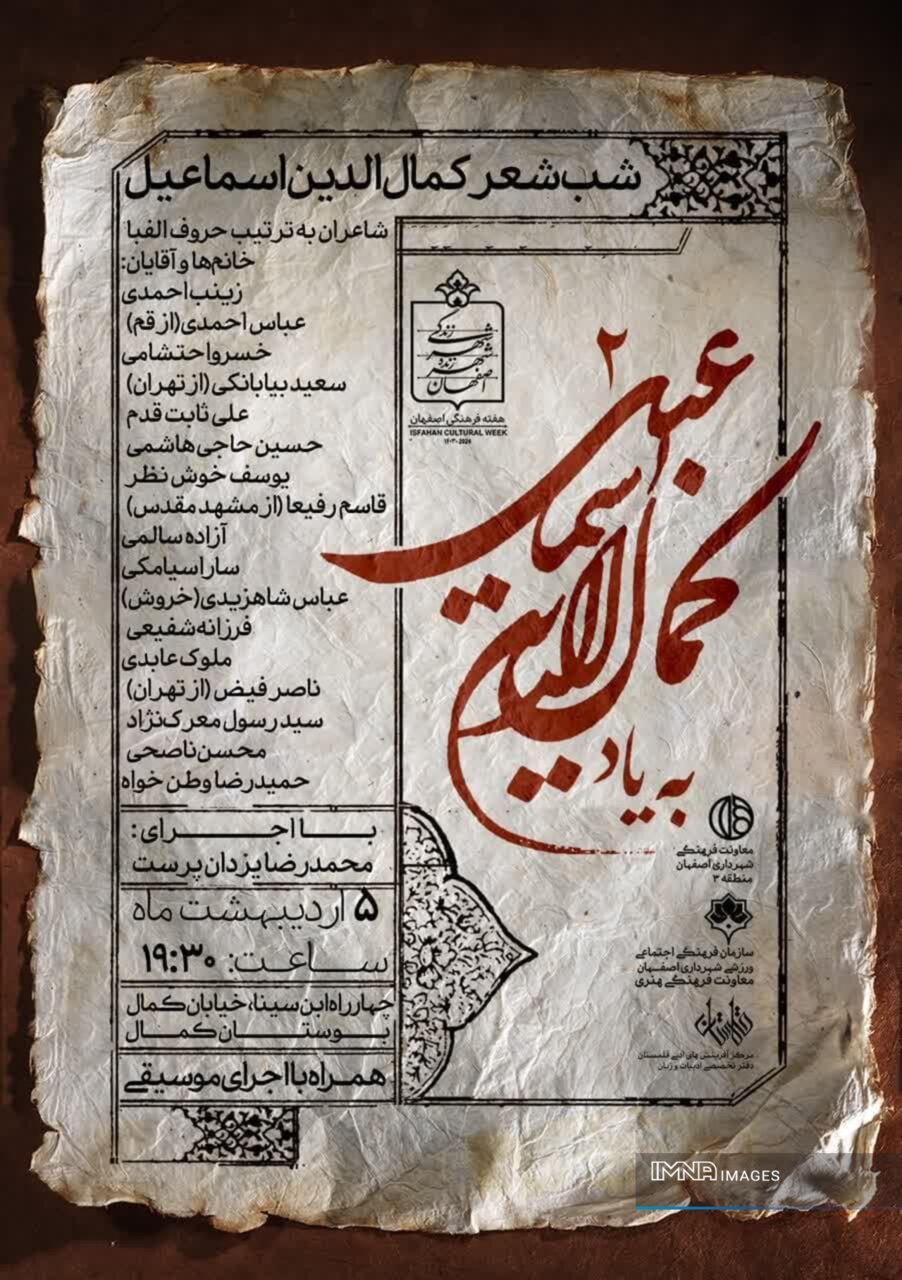 شب شعر کمال الدین اسماعیل
شاعران به ترتیب حروف الفبا
خانم‌ها و آقایان:
زینب احمدی
عباس احمدی (از قم)
خسرو احتشامی
سعید بیابانکی (از تهران)
علی ثابت قدم
حسین حاجی هاشمی
یوسف خوش نظر
قاسم رفیعا (از مشهد مقدس)
آزاده سالمی
سارا سیامکی
عباس شاهزیدی (خروش)
فرزانه شفیعی
ملوک عابدی
ناصر فیض (از تهران)
سید رسول معرک نژاد
محسن ناصحی
حمیدرضا وطن خواه
با اجرای:
محمدرضا یزدان پرست
۵ اردیبهشت ماه
ساعت: ۱۹:۳۰
چهارراه ابن سینا، خیابان کمال
بوستان کمال
همراه با اجرای موسیقی
زندگی
شهر
شهر زنده
اصفهان
هفته فرهنگی اصفهان
ISFAHAN CULTURAL WEEK
۱۴۰۳-2024
۲
به یاد
کمال الدین
اسماعیل
معاونت فرهنگی
شهرداری اصفهان
منطقه ۳
سازمان فرهنگی اجتماعی
ورزشی شهرداری اصفهان
معاونت فرهنگی هنری
مرکز آفرینش های ادبی قلمستان
دفتر تخصصی ادبیات و زبان
IMNA IMAGES